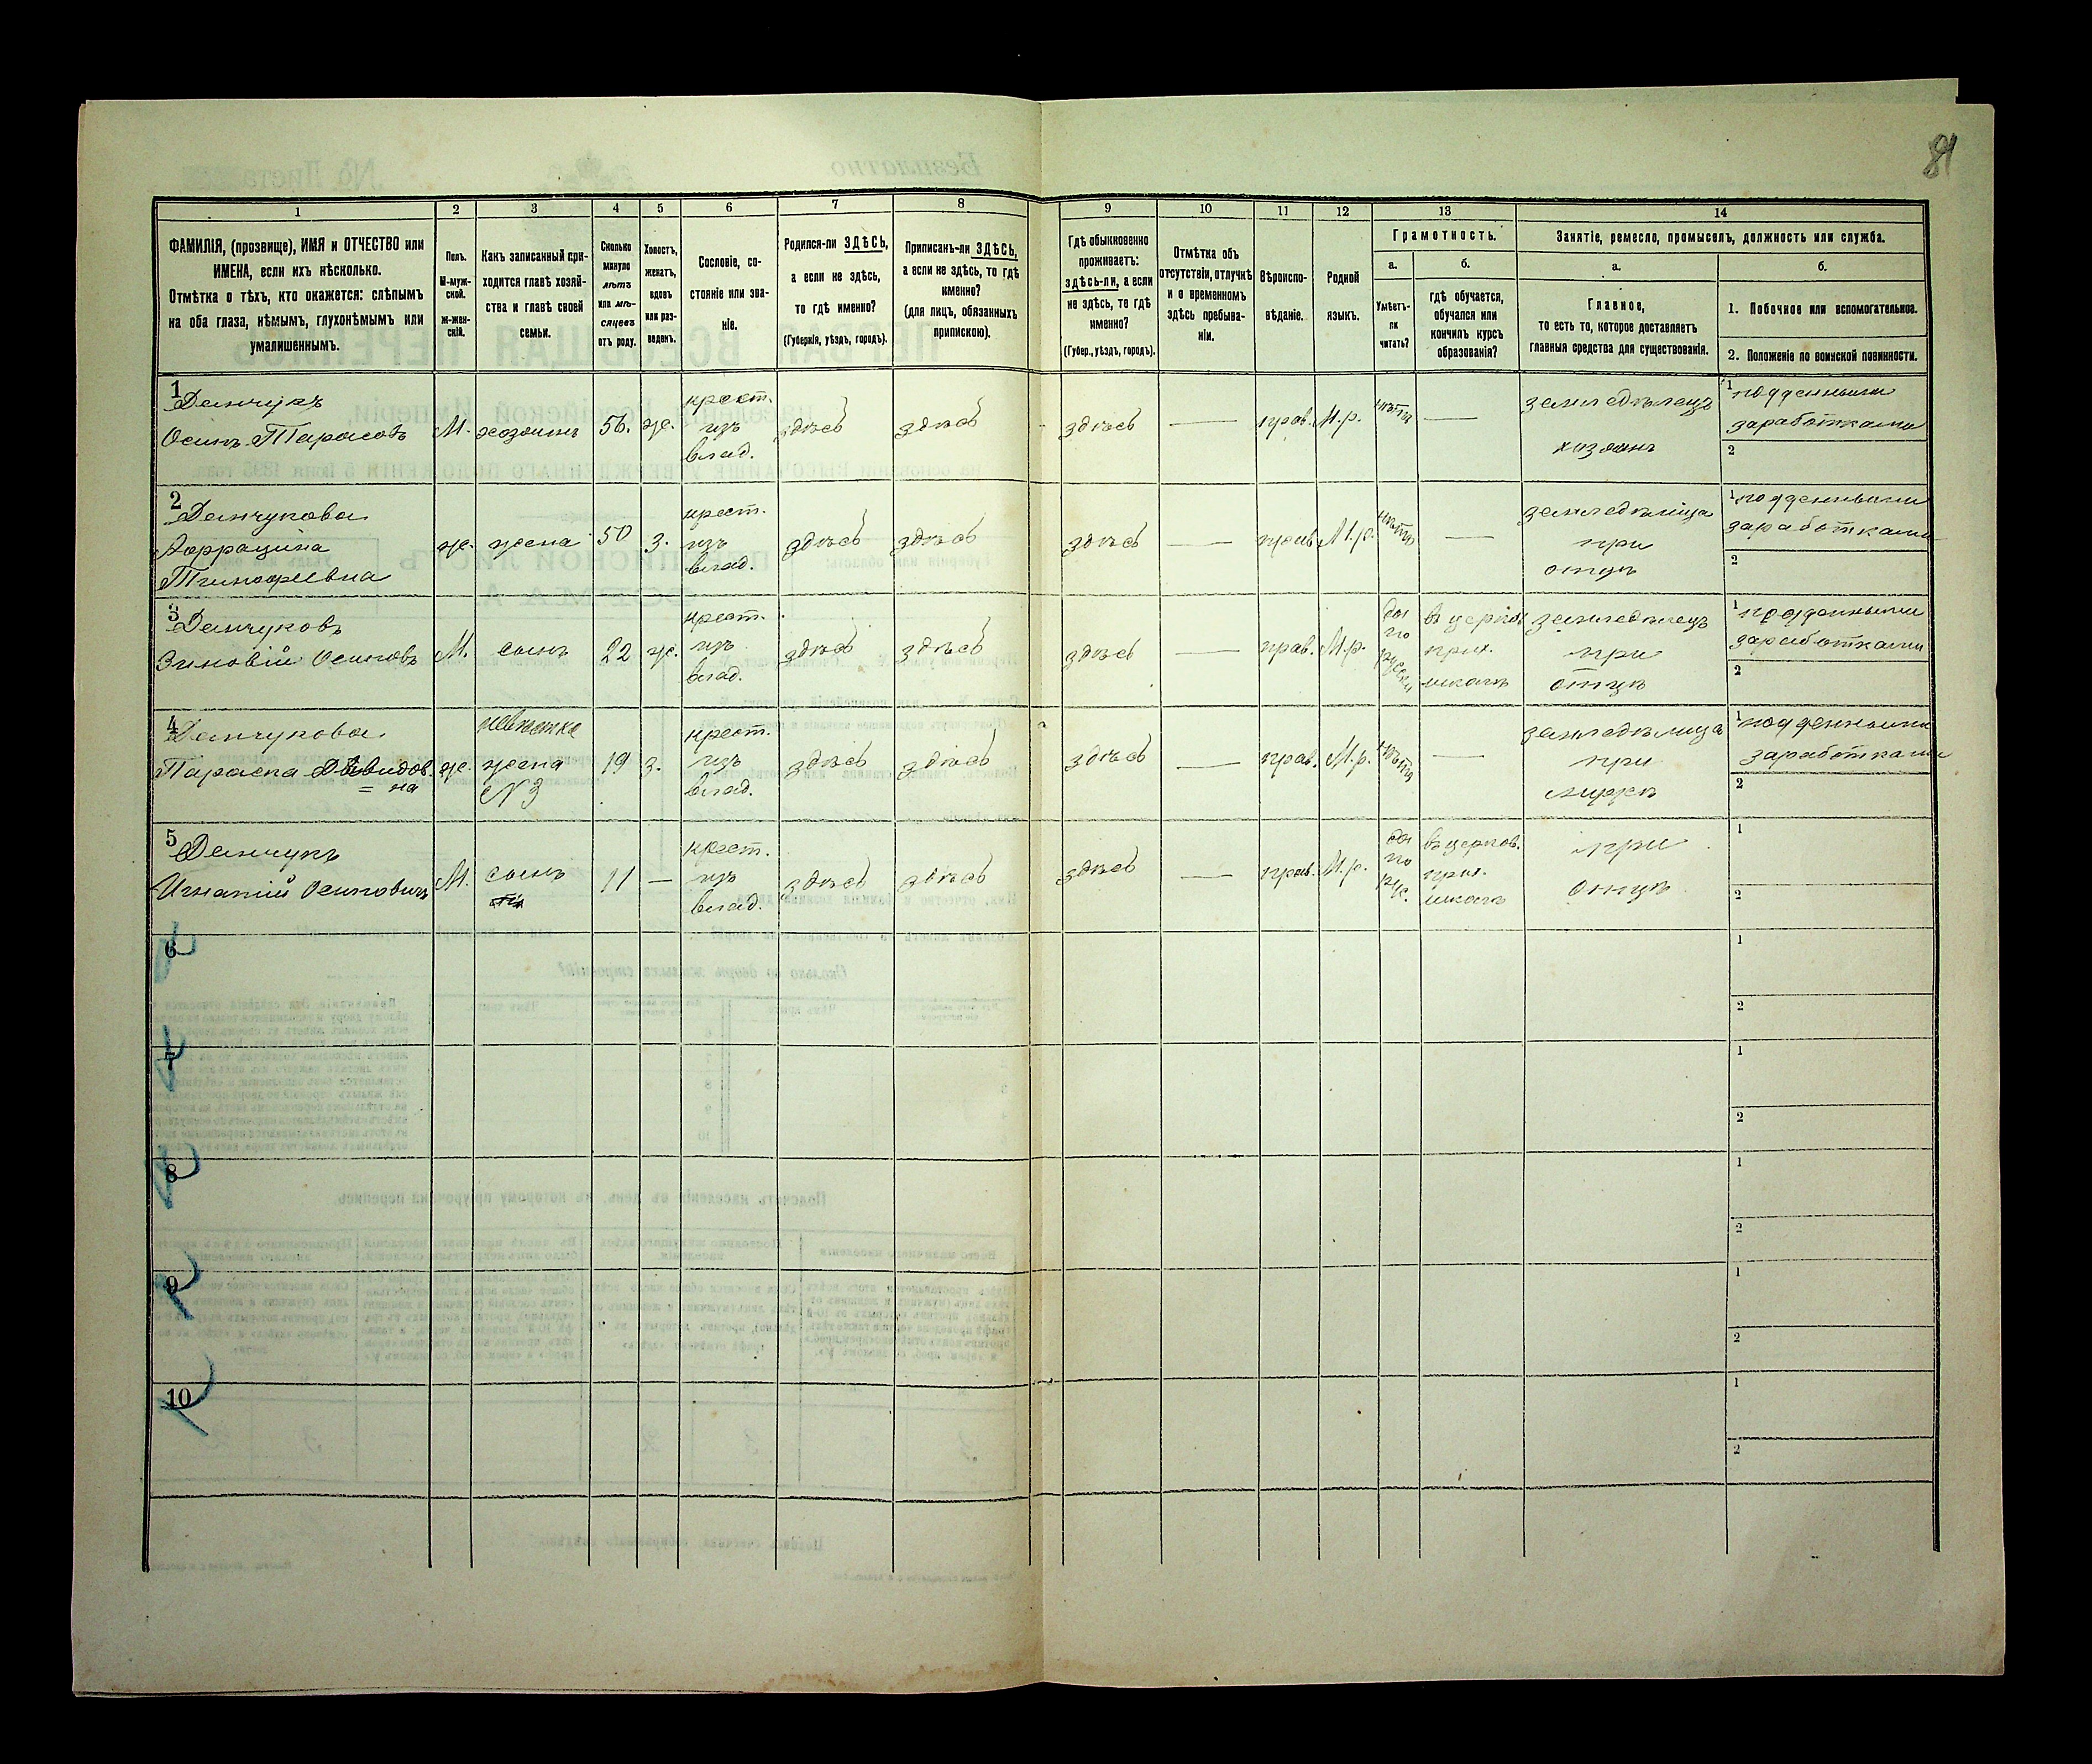 81
1
2
3
4
5
6
7
8
9
10
11
12
13
14
ФАМИЛІЯ, (прозвище), ИМЯ и ОТЧЕСТВО или
ИМЕНА, если ихъ нѣсколько.
Отмѣтка о тѣхъ, кто окажется: слѣпымъ
на оба глаза, нѣмымъ, глухонѣмымъ или
умалишеннымъ.
Полъ.
М-муж-
ской.
ж-жен-
скій.
Какъ записанный при-
ходится главѣ хозяй-
ства и главѣ своей
семьи.
Сколько
минуло
лѣтъ
или мѣ-
сяцевъ
отъ роду.
Холостъ,
женатъ,
вдовъ
или раз-
веденъ.
Сословіе, со-
стояніе или зва-
ніе.
Родился-ли ЗДѢСЬ,
а если не здѣсь,
то гдѣ именно?
(Губернія, уѣздъ, городъ).
Приписанъ-ли ЗДѢСЬ,
а если не здѣсь, то гдѣ
именно?
(для лицъ, обязанныхъ
припискою).
Гдѣ обыкновенно
проживаетъ:
здѣсь-ли, а если
не здѣсь, то гдѣ
именно?
(Губер., уѣздъ, городъ).
Отмѣтка объ
отсутствіи, отлучкѣ
и о временномъ
здѣсь пребыва-
ніи.
Вѣроиспо-
вѣданіе.
Родной
языкъ.
Грамотность.
а.
Умѣетъ-
ли
читать?
б.
гдѣ обучается,
обучался или
кончилъ курсъ
образованія?
Занятіе, ремесло, промыселъ, должность или служба.
а.
Главное,
то есть то, которое доставляетъ
главныя средства для существованія.
б.
1. Побочное или вспомогательное.
2. Положеніе по воинской повинности.
1
Данчукъ
Осипъ Тарасовъ
М.
хозяинъ
56.
ж.
крест.
изъ
влад.
здѣсь
здѣсь
здѣсь
—
прав.
М.р.
нѣтъ
—
земледѣлецъ
хозяинъ
1 подденными
заработками
2
2
Данчукова
Тимофеевна
ж.
жена
50
з.
крест.
изъ
влад.
здѣсь
здѣсь
здѣсь
—
прав.
М.р.
нѣтъ
—
земледѣлица
при
отцѣ
1 подденными
заработками
2
3
Данчуковъ
Зиновій Осиповъ
М.
сынъ
22
ж.
крест.
изъ
влад.
здѣсь
здѣсь
здѣсь
—
прав.
М.р.
да
по
русски
въ церков.
прих.
школѣ
земледѣлецъ
при
отцѣ
1 подденными
заработками
2
4
Данчукова
Параска Давидов
=на
ж.
невѣстка
жена
№3
19
з.
крест.
изъ
влад.
здѣсь
здѣсь
здѣсь
—
прав.
М.р.
нѣтъ
—
земледѣлица
при
мужѣ
1 подденными
заработками
2
5
Данчукъ
Игнатій Осиповичъ
М.
сынъ
11
—
крест.
изъ
влад.
здѣсь
здѣсь
здѣсь
—
прав.
М.р.
да
по
рус.
въ церков.
прих.
школѣ
при
отцѣ
1
2
6
1
2
7
1
2
8
1
2
9
1
2
10
1
2